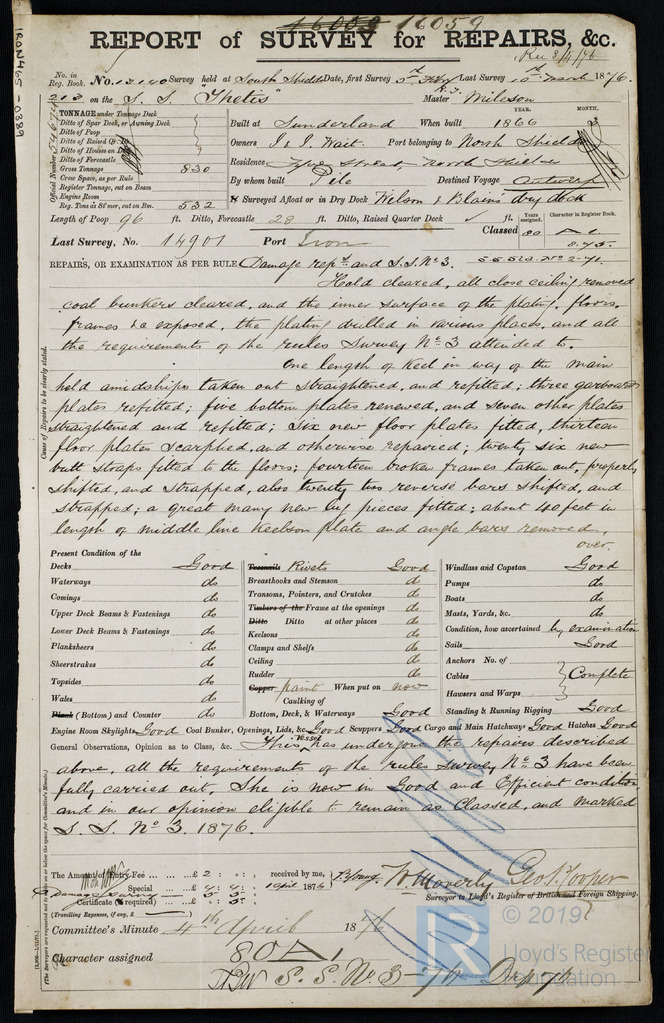 16059
REPORT of SURVEY for REPAIRS, &c.
IRON465-0389
No. in Reg. Book. No. 13140 Survey held at South Shields Date, first Survey Last Survey 10th March 1876.
213 on the S. S. "Thetis" Master Wilson
TONNAGE under Tonnage Deck
Ditto of Spar Deck, or Awning Deck
Ditto of Poop
Ditto of Raised Qr. Dk
Ditto of Houses on Deck
Ditto of Forecastle
Gross Tonnage 830
Crew Space, as per Rule
Register Tonnage, cut on Beam
Engine Room
Reg. Tons as Stmr, cut on Bm. 532
Official Number
YEAR. MONTH.
Built at Sunderland When built 1866
Owners J & J. Wait. Port belonging to North Shields
Residence North Shields
By whom built Pile Destined Voyage Antwerp
If Surveyed Afloat or in Dry Dock Nelson & Blain's dry dock
Length of Poop 96 ft. Ditto, Forecastle 28 ft. Ditto, Raised Quarter Deck ft.
Years assigned. Character in Register Book.
Classed
8.75.
Last Survey, No. 14901 Port Iron
REPAIRS, OR EXAMINATION AS PER RULE Damage repr and S.S. No 3.
Hold cleared, all close ceiling removed
coal bunkers cleared, and the inner surface of the plating, floors,
frames &c exposed, the plating drilled in various places, and all
the requirements of the rules Survey No 3 attended to.
One length of keel in way of the main
hold amidships taken out straightened, and refitted; three garboard
plates refitted; five bottom plates renewed, and seven other plates
straightened and refitted; six new floor plates fitted, thirteen
floor plates scarphed, and otherwise repaired; twenty six new
butt straps fitted to the floors; fourteen broken frames taken out, properly
shifted, and strapped, also twenty two reverse bars shifted, and
strapped; a great many new lug pieces fitted; about 40 feet in
length of middle line keelson plate and angle bars removed,
over.
Cause of Repairs to be clearly stated.
Present Condition of the
Decks Good
Waterways do
Comings do
Upper Deck Beams & Fastenings do
Lower Deck Beams & Fastenings do
Planksheers do
Sheerstrakes do
Topsides do
Wales do
Plank (Bottom) and Counter do
Treenails Rivets Good
Breasthooks and Stemson do
Transoms, Pointers, and Crutches do
Timbers of the Frame at the openings do
Ditto Ditto at other places do
Keelsons do
Clamps and Shelfs do
Ceiling do
Rudder do
Copper paint When put on now
Caulking of
Bottom, Deck, & Waterways Good
Windlass and Capstan Good
Pumps do
Boats do
Masts, Yards, &c. do
Condition, how ascertained by examination
Sails Good
Anchors No. of
Cables Complete
Hawsers and Warps
Standing & Running Rigging Good
Engine Room Skylights Good Coal Bunker, Openings, Lids, &c. Good Scuppers Good Cargo and Main Hatchways Good Hatches Good
General Observations, Opinion as to Class, &c. This Vessel has undergone the repairs described
above, all the requirements of the rules Survey No 3 have been
fully carried out, She is now in Good and Efficient condition
and in our opinion eligible to remain as Classed, and marked
S. S. No 3. 1876.
The Amount of Entry Fee £ 2 : :
Special £
Damage Survey
Certificate (if required)
(Travelling Expenses, if any, £ )
received by me,
April 1876
W Moverly Geo. P. Cooper
Surveyor to Lloyd's Register of British and Foreign Shipping.
Committee's Minute 4th April 1876
Character assigned 80 A 1
S. S. No 3-76
© 2019
Lloyd's Register
Foundation